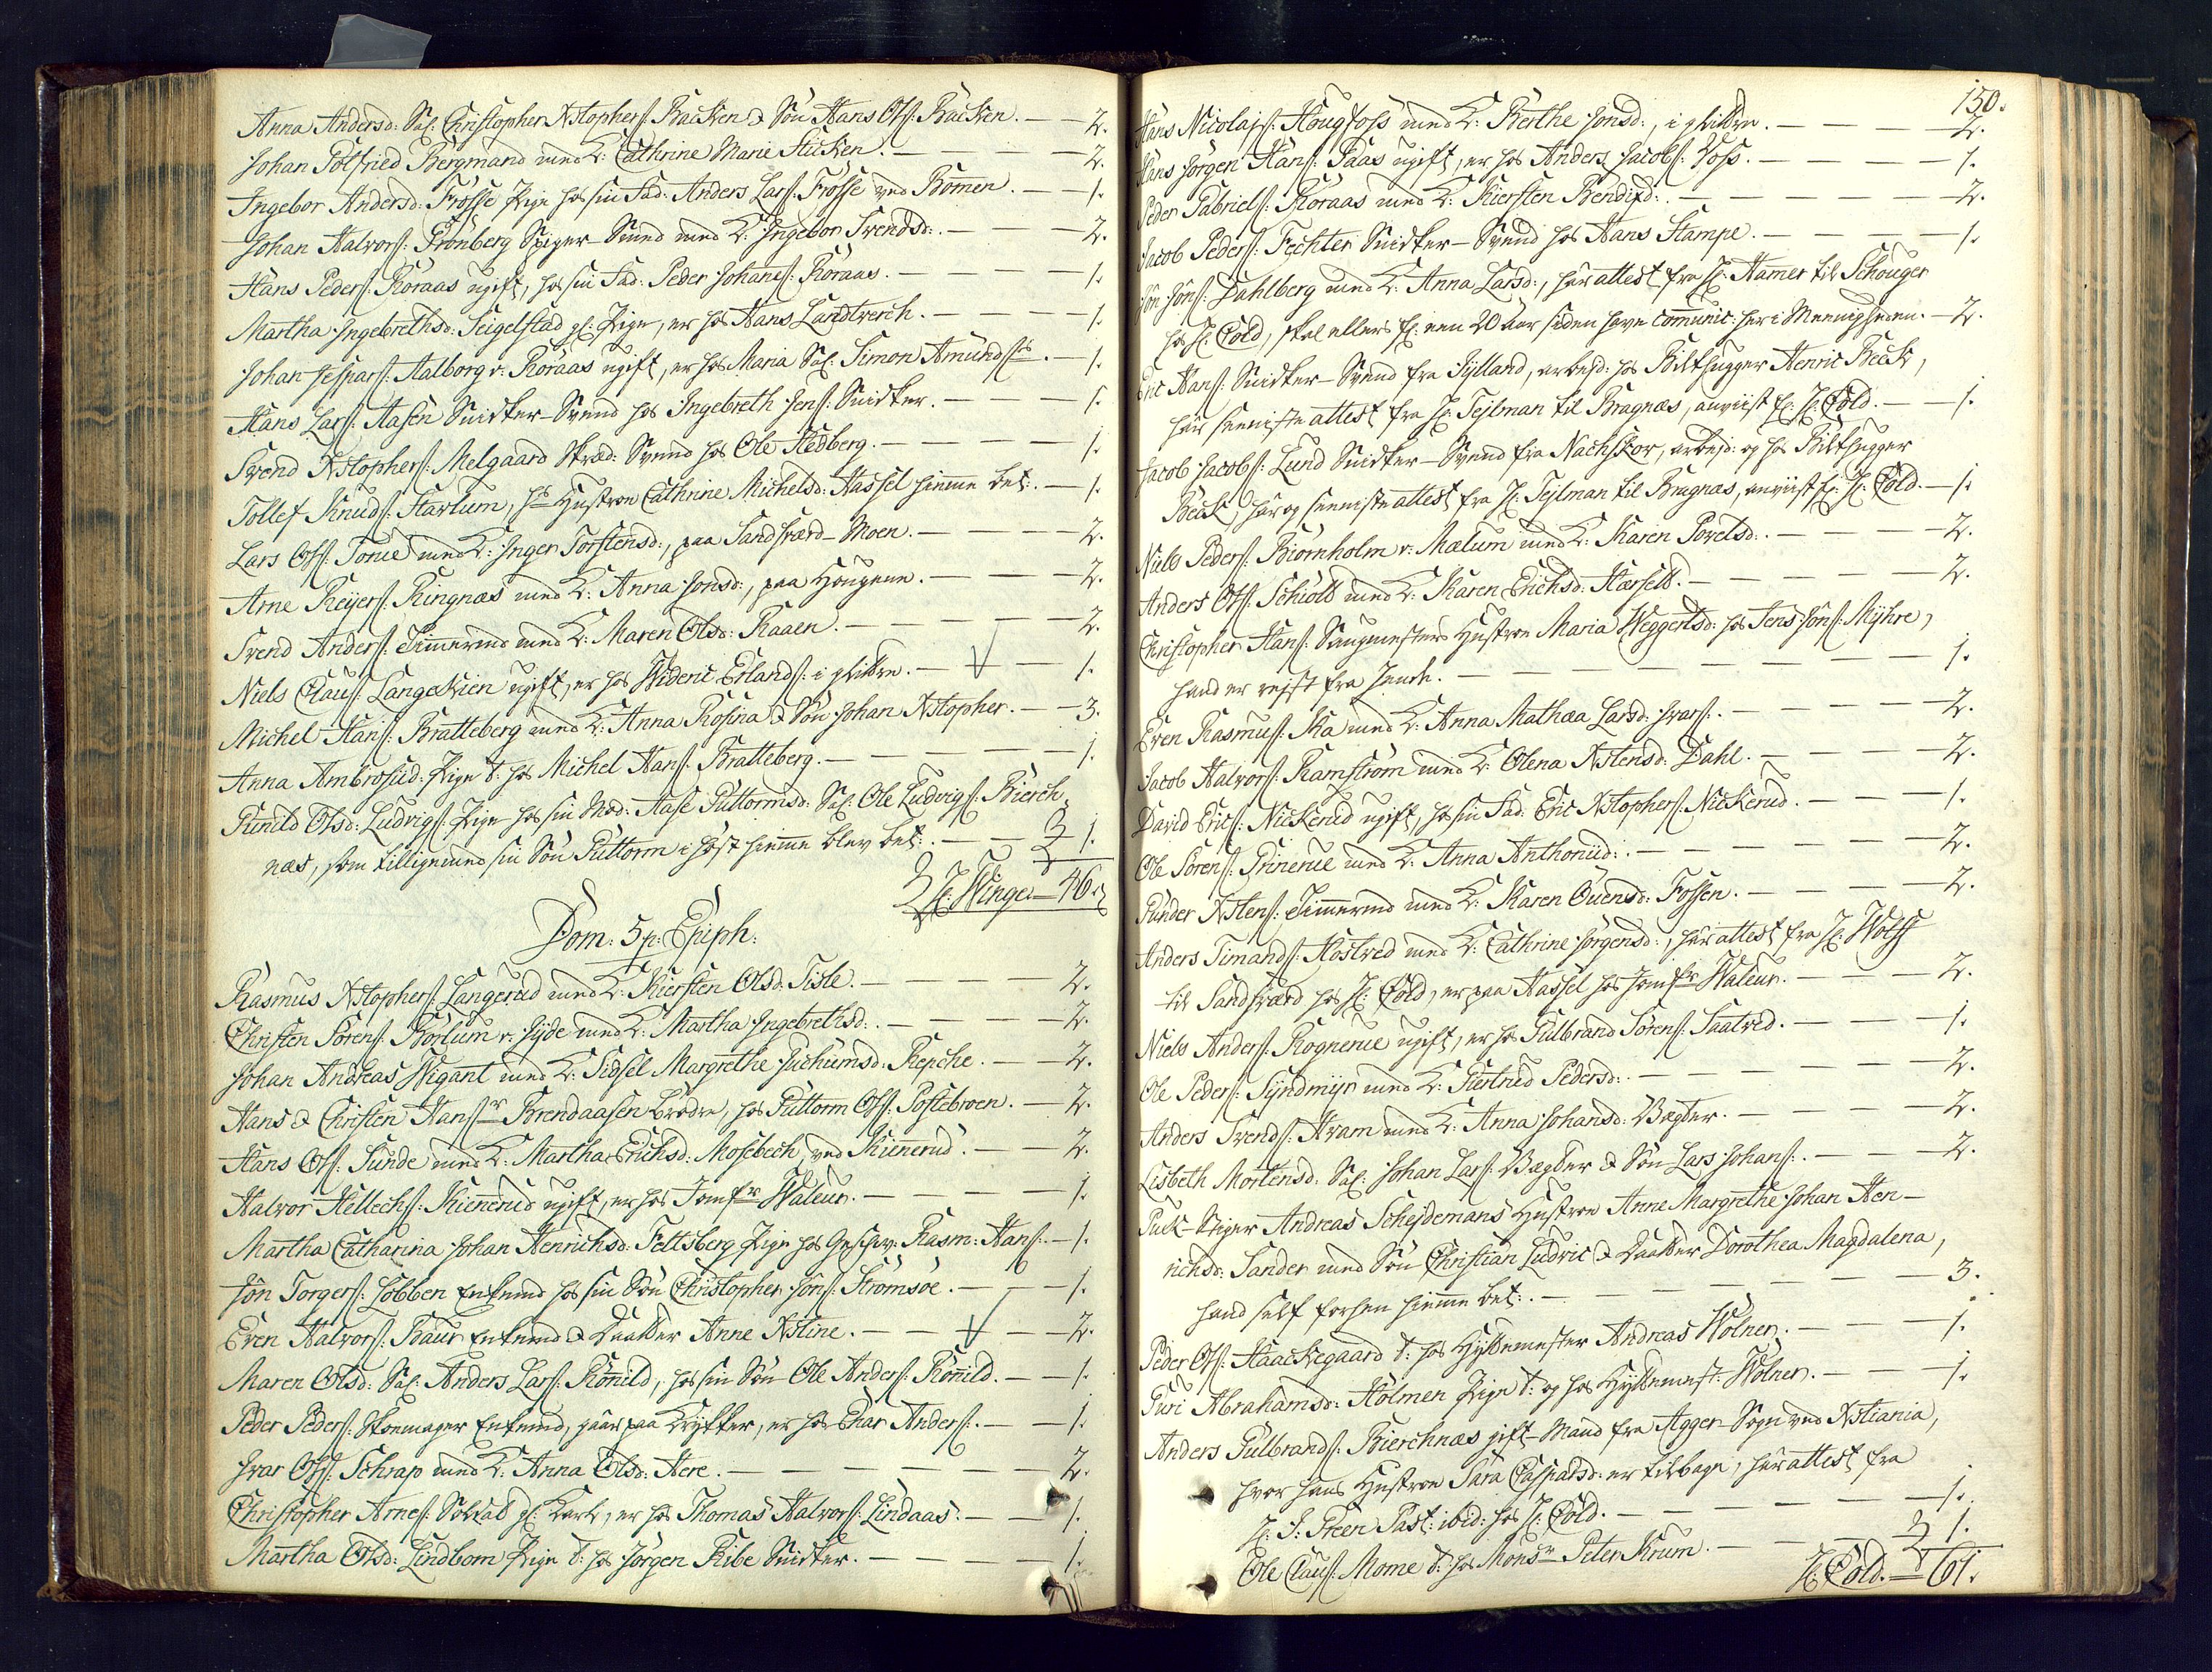 Anna Andersd: Sal: Christopher Xstophers: Backen & Søn Hans Ols: Backen. — 2.
Johan Gotfried Bergmand med K: Cathrine Marie Sticken. — 2.
Ingebor Andersd: Frosse Pige hos sin Fad: Anders Lars: Frosse ved Bommen. — 1.
Johan Halvors: Grönberg Spiger-Smed med K: Ingebor Svendsd: — 2.
Hans Peders: Röraas ugift, hos sin Fad: Peder Johanes: Röraas. — 1.
Martha Ingebrethsd: Teigelstad gl: Pige, er hos Hans Landtverch. — 1.
Johan Jespars: Aalborg v: Röraas ugift, er hos Maria Sal: Simon Amunds — 1.
Hans Lars: Aasen Snidker-Svend hos Ingebreth Jens: Snidker. — 1.
Svend Xstophers: Melgaard Skræd: Svend hos Ole Hedberg. — 1.
Tollef Knuds: Harlum, hs Hustroe Cathrine Michelsd: Hassel hiemme bet: — 1.
Lars Ols: Tonne med K: Inger Torstensd:, paa Sandsværd-Moen. — 2.
Arne Reyers: Ringnæs med K: Anna Jonsd:, paa Hougene. — 2.
Svend Anders: Timmermd med K: Maren Olsd: Raaen. — 2.
Niels Claus: Langekien ugift, er hos Wideric Erlands: i gliddre. — 1.
Michel Hans: Bratteberg med K: Anna Rosina & Søn Johan Xstopher. — 3.
Anna Ambrosiid: Pige t: hos Michel Hans: Bratteberg. — 1.
Gunild Olsd: Ludvigs: Pige hos sin Mod: Aase Guttormsd: Sal: Ole Ludvigs: Bierch
næs, som tilligemed sin Søn Guttorm i høst hiemme blev bet: — 1.
H: Winge — 46.
Dom: 5 p: Epiph:
Rasmus Xstophers: Langerud med K: Kiersten Olsd: Tisle. — 2.
Christen Sörens: Borlum v: Jyde med K: Martha Ingebrethsd: — 2.
Johan Andreas Wigant med K: Sidsel Margrethe Juchumsd: Repche. — 2.
Hans & Christen Hansr Brendaasen Brødre, hos Guttorm Ols: Gostebroen. — 2.
Hans Ols: Sunde med K: Martha Erichsd: Mosebech ved Kiennerud. — 2.
Halvor Hellechs: Kiennerud ugift, er hos Jomfr Waleur. — 1.
Martha Catharina Johan Henrichsd: Feltsberg Pige hos Geschw: Rasm: Hans: — 1.
Jön Torgers: Löbben Enkemd hos sin Søn Christopher Jöns: Strömsöe. — 1.
Even Halvors: Baur Enkemd & Daatter Anne Xstine. — 2.
Maren Olsd: Sal: Anders Lars: Rönnild, hos sin Søn Ole Anders: Rönnild. — 1.
Peder Peders: Skomager Enkemd, gaar paa Krykker, er hos Char Anders: — 1.
Ivar Ols: Schrap med K: Anna Olsd: Aere. — 2.
Christopher Arnes: Solstad gl: Karl, er hos Thomas Halvors: Lindaas. — 1.
Martha Olsd: Lindbom Pige t: hos Jörgen Ribe Snidker. — 1.
150.
Hans Nicolajs: Hougfoss med K: Berthe Jonsd:, i gliddre. — 2.
Hans Jörgen Hans: Paas ugift, er hos Anders Jacobs: Foss. — 1.
Peder Gabriels: Röraas med K: Kiersten Bendixd: — 2.
Jacob Peders: Fechter Snidker-Svend hos Hans Stampe. — 1.
Jön Jöns: Dahlberg med K: Anna Larsd:, har attest fra H: Hamer til Schouger
hos H: Cold, skal ellers for: een 20 Aar siden have communic: her i Meenigheeden. — 2.
Eric Hans: Snidker-Svend fra Jylland, arbejd: hos Bilthugger Henric Beck,
har seeniste attest fra H: Tejlman til Bragnæs, anviist for: H: Cold. — 1.
Jacob Jacobs: Lund Snidker-Svend fra Nachskov, arbejd: og hos Bilthugger
Beck, har og seeniste attest fra H: Tejlman til Bragnæs, anviist for: H: Cold. — 1.
Niels Peders: Biörnholm v: Mælum med K: Karen Povelsd: — 2.
Anders Ols: Schiöld med K: Karen Erichsd: Hærseth. — 2.
Christopher Hans: Saugmesters Hustroe Maria Weggertsd: hos Jens Jöns: Myhre,
hand er rejst fra hende. — 1.
Even Rasmus: Ka med K: Anna Mathæa Larsd: Ivars: — 2.
Jacob Halvors: Ramström med K: Olena Xstensd: Dahl. — 2.
David Erics: Nickerud ugift, hos sin Fad: Eric Xstophers: Nickerud. — 1.
Ole Sörens: Grinerue med K: Anna Anthoniid: — 2.
Gunder Xstens: Timmermd med K: Karen Ouensd: Fossen. — 2.
Anders Timands: Hostved med K: Cathrine Jörgensd:, har attest fra H: Wolff
til Sandsværd hos H: Cold, er paa Hassel hos Jomfr Waleur. — 2.
Niels Anders: Rognerue ugift, er hos Gulbrand Sörens: Saatved. — 1.
Ole Peders: Syndmyr med K: Giertrud Pedersd: — 2.
Anders Svends: Hvam med K: Anna Johansd: Vægter. — 2.
Lisbeth Mortensd: Sal: Johan Lars: Vægter & Søn Lars Johans: — 2.
Puck-Stiger Andreas Schejdemans Hustroe Anne Margrethe Johan Hen-
richsd: Sander med Søn Christian Ludvic & Daatter Dorothea Magdalena,
hand self forhen hiemme bet: — 3.
Peder Ols: Haackegaard t: hos Hyttemester Andreas Wolner. — 1.
Guri Abrahamsd: Holmen Pige t: og hos Hyttemest: Wolner. — 1.
Anders Gulbrands: Bierchnæs gift-Mand fra Agger Sogn ved Xstiania,
hvor hans Hustroe Sara Caspersd: er tilbage, har attest fra
H: J: Steen Past: ibid: hos H: Cold. — 1.
Ole Claus: Mome t: hos Monsr Peter Krum. — 1.
H: Cold. — 61.